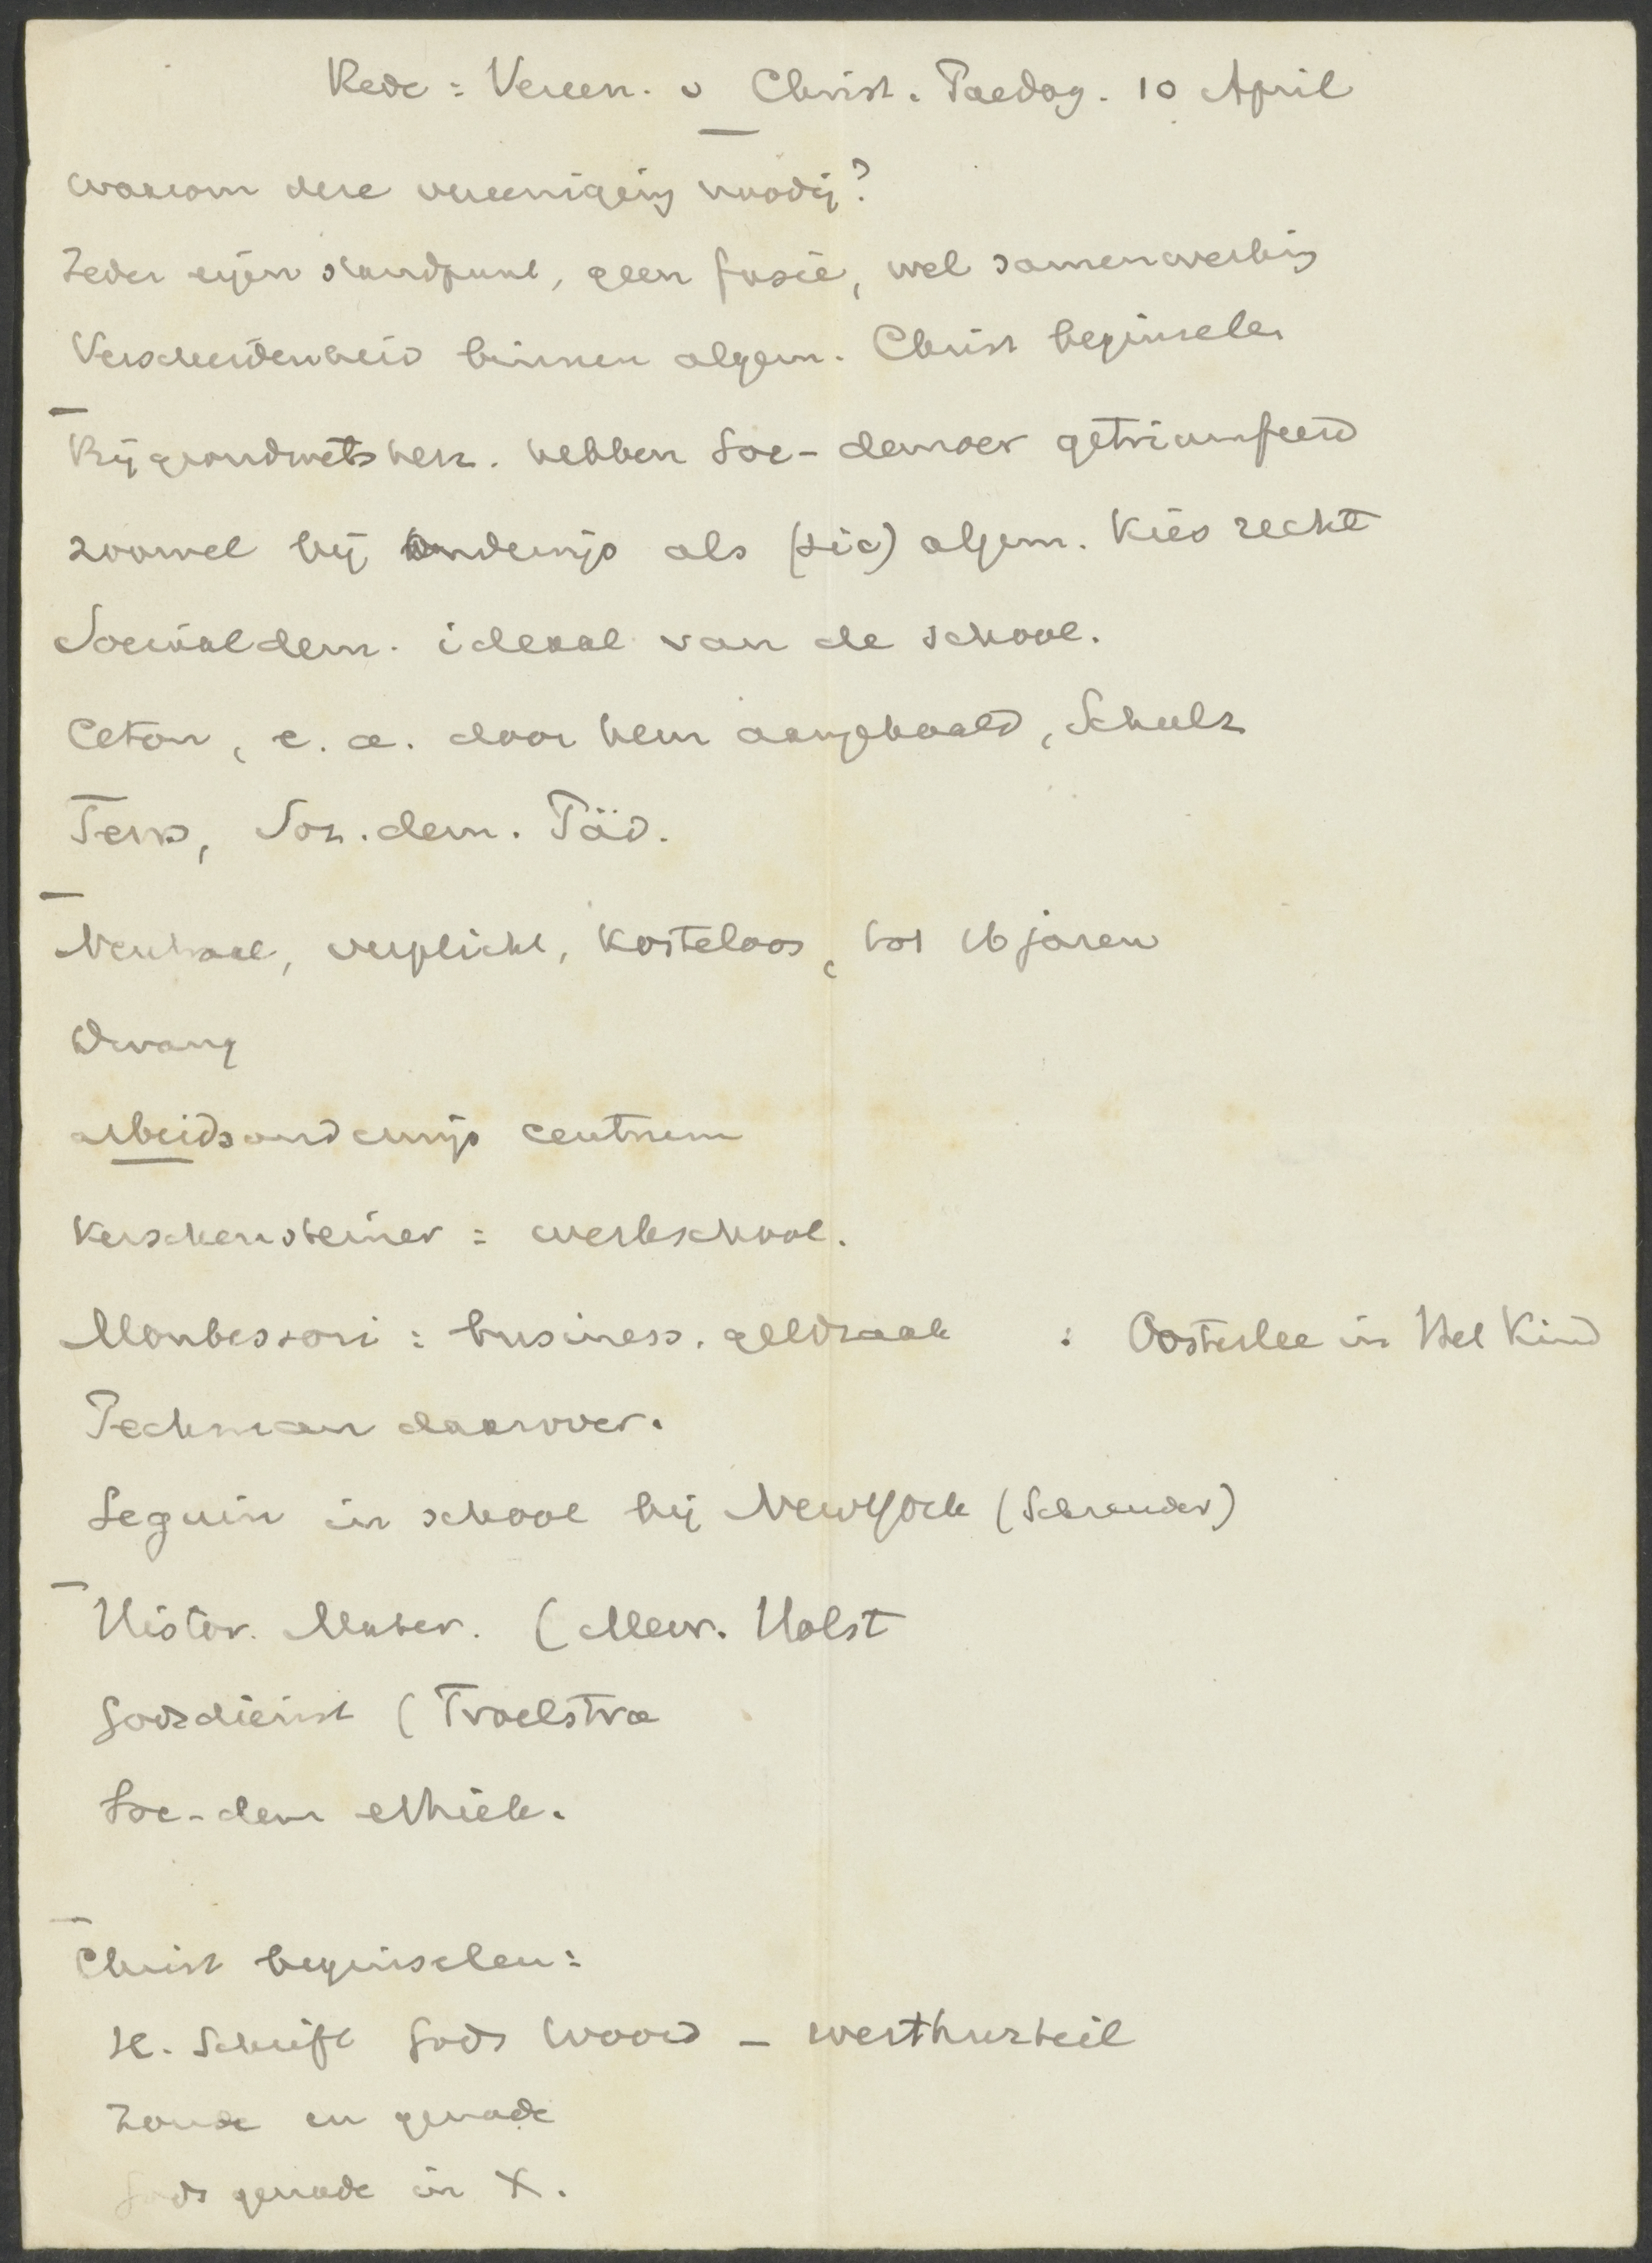 Rede : Vereen. v Christ. Paedag. 10 April
waarom deze vereeniging noodig?
Ieder eigen standpunt, geen fusie, wel samenwerking
Verscheidenheid binnen algem. Christ beginselen
Bij grondwetsherz. hebben Soc-democr getriumfeerd
zoowel bij onderwijs als (sic) algem. Kiesrecht
Sociaaldem. ideaal van de school.
Ceton, e. a. door hem aangehaald, Schulz
Tews, Soz. dem. Päd.
Neutraal, verplicht, kosteloos, tot 16 jaren
Dwang
arbeidsonderwijs centrum
Kerschensteiner : werkschool.
Montessori : business. geldzaak : Oosterlee in Het Kind
daarover.
Seguin in school bij NewYork (Schreuder)
Histor. Mater. (Mevr. Holst
Godsdienst (Troelstra
Soc-dem ethiek.
Christ beginselen :
H. Schrift Gods Woord - werthurteil
Zonde en genade
Gods genade in X.